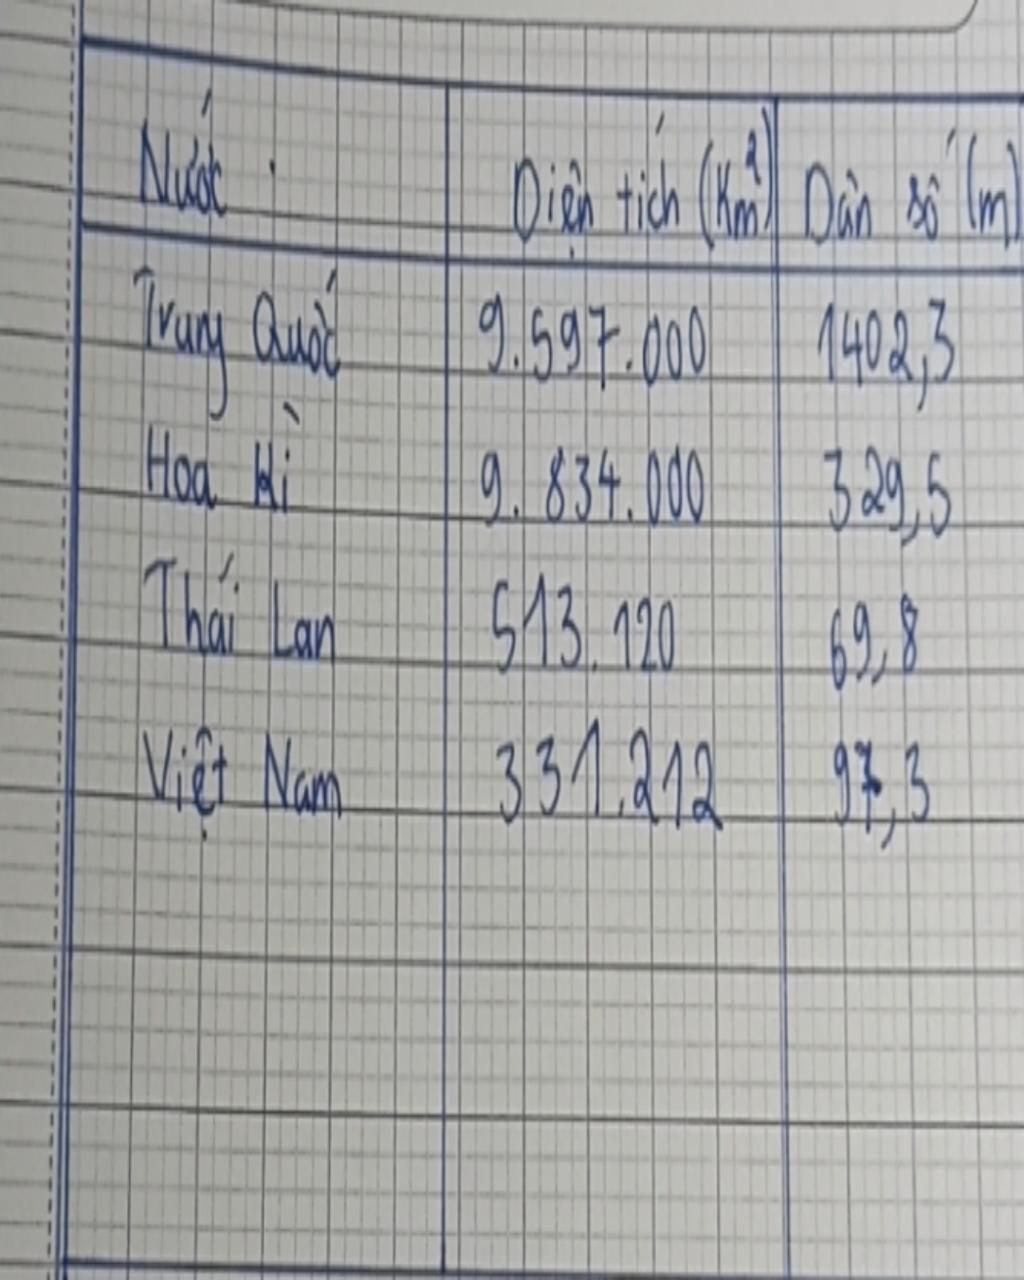 Nước Diện tích (Km²) Dân số (m)
Trung Quốc 9.597.000 1402,3
Hoa Kì 9.834.000 329,5
Thái Lan 513.120 69,8
Việt Nam 331.212 97,3